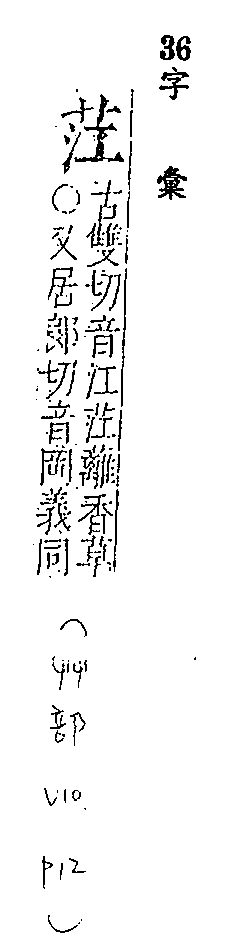 36字彙
茳
古雙切音江茳離香草
○又居郎切音岡義同
(艸部 V10. P12)